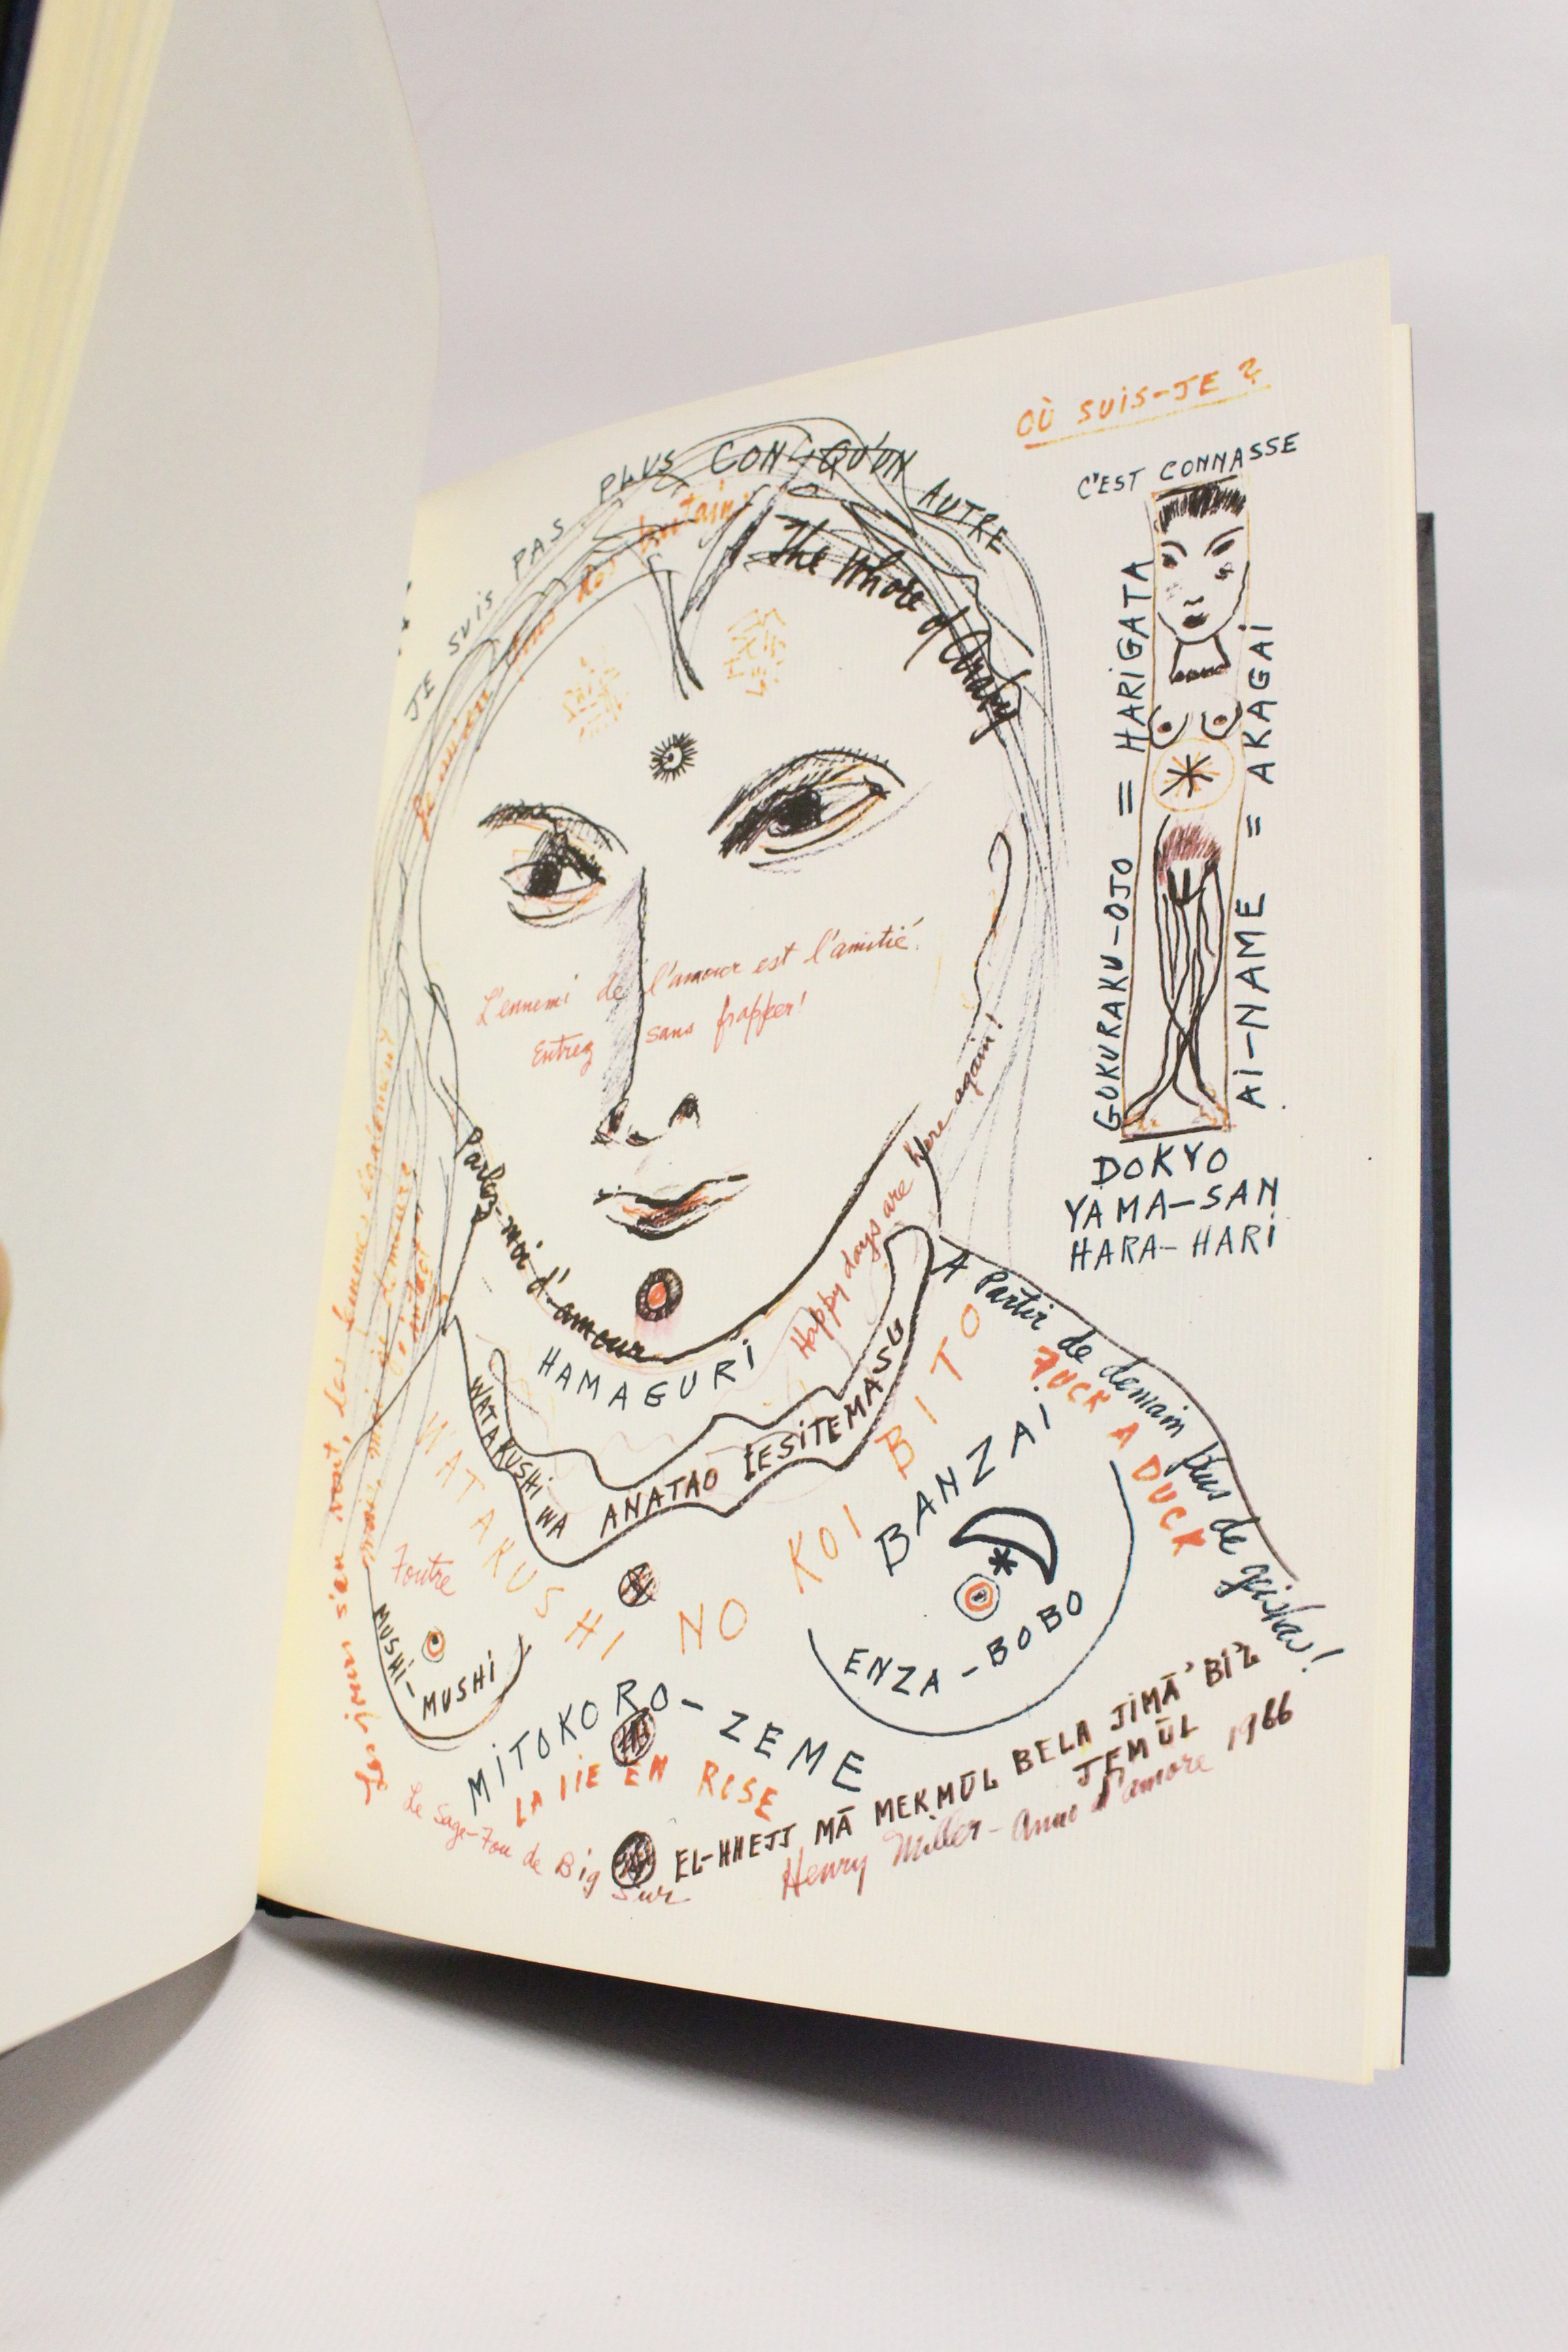 OÙ SUIS-JE ?
C'EST CONNASSE
JE SUIS PAS PLUS CON QU'UN AUTRE
The Whore of
GOKURAKU-OJO = HARIGATA
AI-NAME = AKAGAI
DOKYO
YAMA-SAN
HARA-HARI
L'ennemi de l'amour est l'amitié.
Entrez sans frapper!
Parlez-moi d'amour
Happy days are here again!
HAMAGURI
WATAKUSHI WA ANATAO
A Partir de demain plus de geishas!
FUCK A DUCK
WATAKUSHI NO KOI BITO
BANZAI
ENZA-BOBO
Foutre
MUSHI-MUSHI
MITOKORO-ZEME
LA VIE EN ROSE
Le Sage-Fou de Big Sur
EL-HHEJJ MĀ MEKMŪL BELA JIMĀ' BIZ
JEMŪL
Henry Miller - Anno d'amore 1966